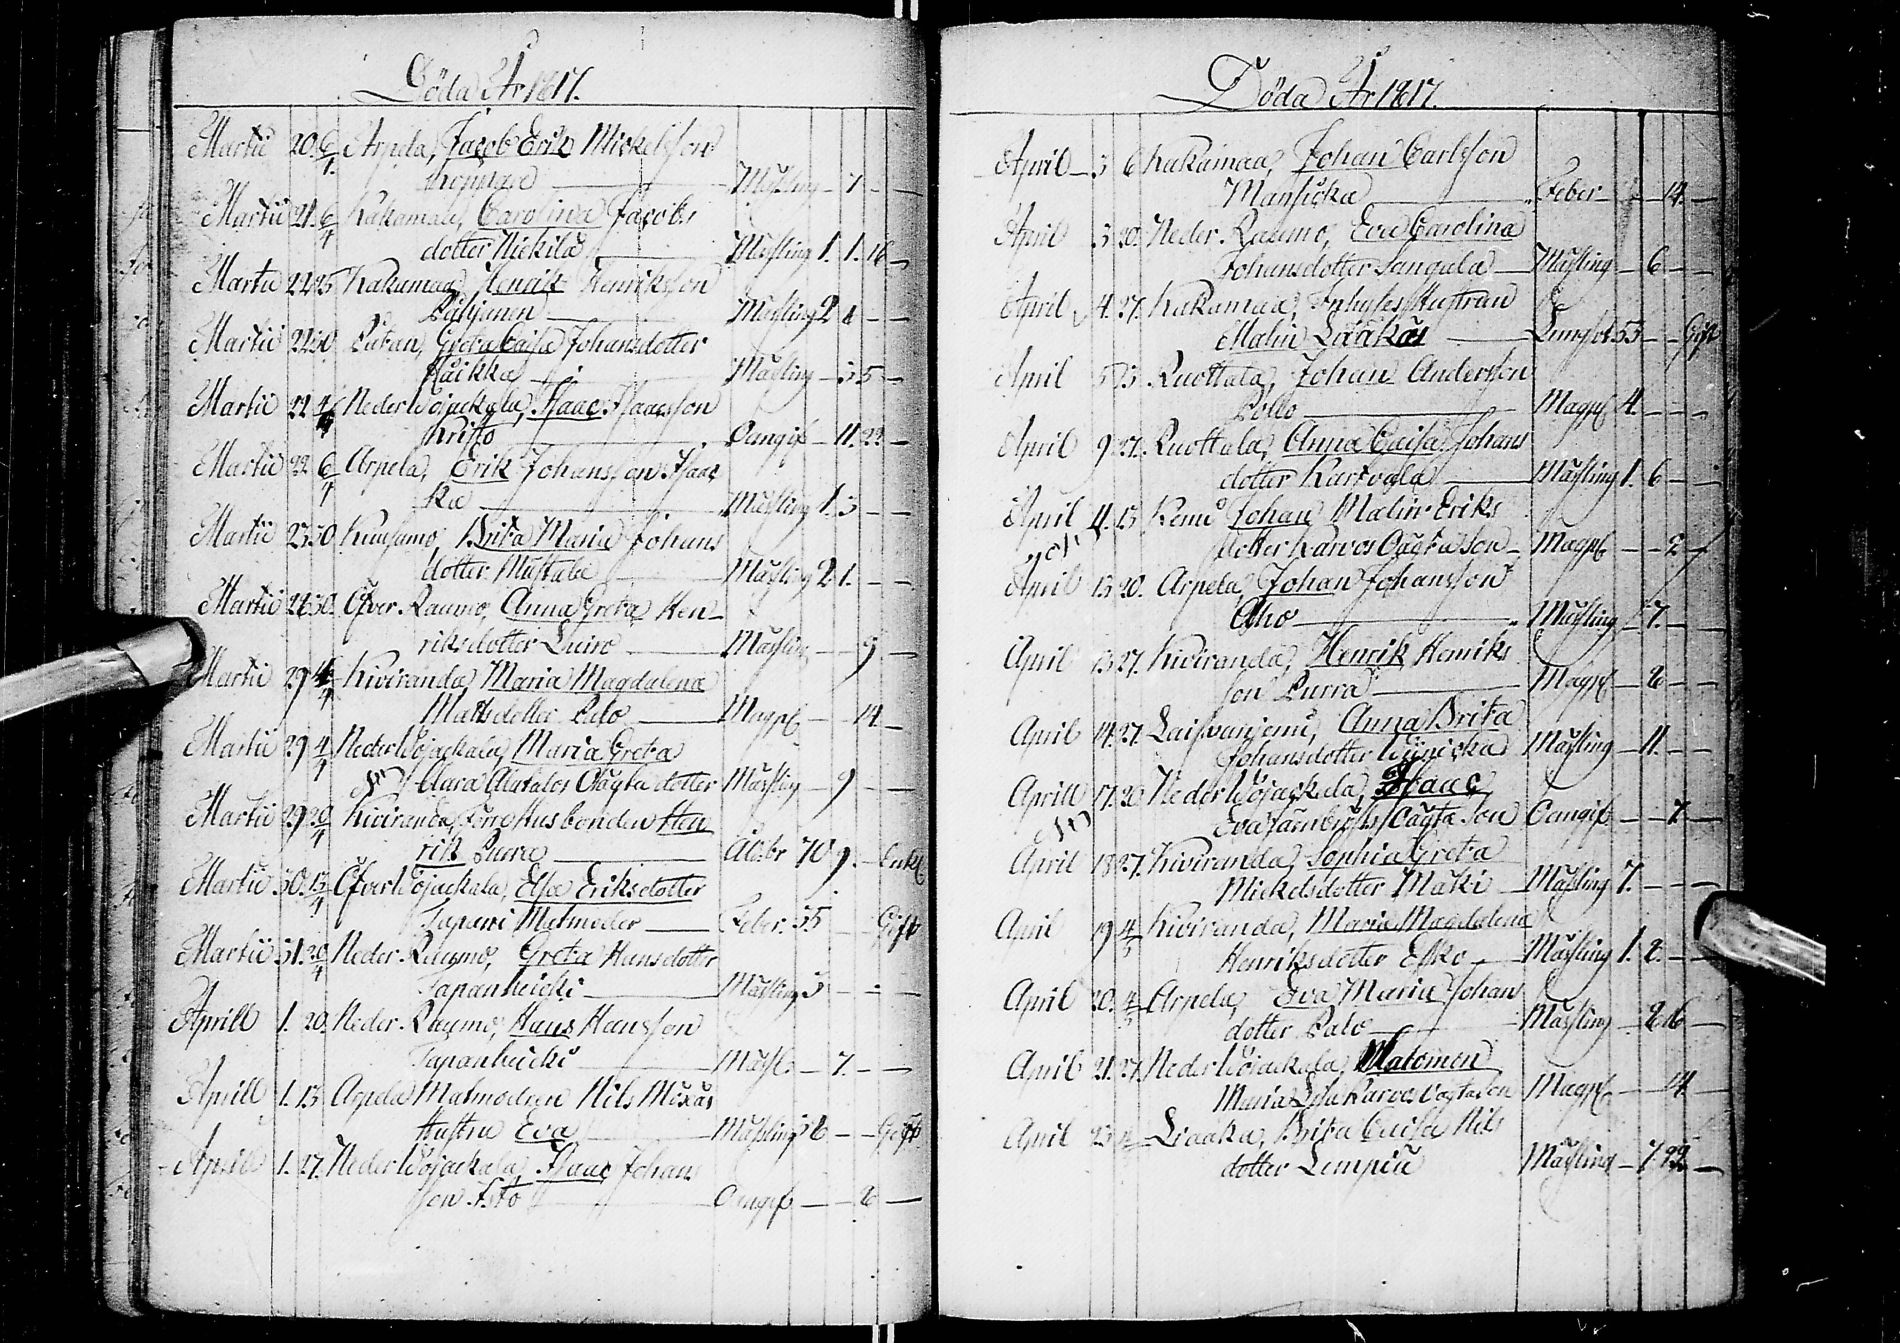 Döda År 1817.
Martii 20. 6/4 Arpela, Jacob Erik Mickelsson
Mäsling 7
Martii 21. 6/4 Kakamaa, Carolina Jacobs
dotter Nickila Mäsling 1. 1. 16
Martii 22 25 Kakamaa Henrik Henriksson
Mäsling 2
Martii 22 30 Greta Caisa Johansdotter
Raikka Mäsling 3 5
Martii 22 4/4 Neder Wojackala, Isaac Isaacsson
Kritto 11. 22
Martii 22 6/4 Arpela, Erik Johansson Isaac
ka Mäsling 1. 3
Martii 23 30 Kuusamo, Brita Maria Johans
dotter Mustala Mäsling 2 1.
Martii 30. Öfver Raumo, Anna Greta Hen-
riksdotter Luiro Mäsling 9
Martii 29 Kiviranda, Maria Magdalena
Mattsdotter Palo Magpl. 14
Martii 29 4/4 Neder Wojackala, Maria Greta
Clara Alatalos Oägta dotter Mäsling 9
Martii 29 20/4 Kiviranda, Förre Husbonden Hen
rik Purra Ålbr 70 9. Enkl.
Martii 30. 13/4 Öfver Wojackala, Elsa Eriksdotter
Tapani Matmoder Feber. 55 Gift
Martii 31. 20/4 Neder Raumo, Greta Hansdotter
Tapanheicki Mäsling 3
Aprill 1. 20. Neder Raumo, Hans Hansson
Tapanheicki Mäsl. 7.
Aprill 1. 13 Arpela Matmodren Nils
Hustru Eva Mäsling 36 Gift
April 1. 27. Neder Wojackala, Isaac Johans
son Isto 8
Döda År 1817.
April 3 6 Kakamaa, Johan Carlsson
Mansicka Feber 14.
April 3 20. Neder Raumo, Eva Carolina
Johansdotter Sangala Mäsling 6
April 4. 27. Kakamaa, Inhyses Hustrun
Malin Laakas Lungsot 55 Gift
April 5 13 Ruottala, Johan Andersson
Magpl. 4.
April 9 27. Ruottala, Anna Caisa Johans
dotter Mäsling 1. 6
April 11. 13 Kemi Johan Malin Eriks
dotter Karvos Oägta son Magpl. 2
April 13 20. Arpela, Johan Johansson
Aho Mäsling 7.
April 13 27. Kiviranda, Henrik Henriks
son Purra Magpl. 8
April 14. 27. Laivaniemi, Anna Brita
Johansdotter Mäsling 11.
Aprill 17. 20 Neder Wojackala, Isaac
Eva Oägta Son 7
April 18 27. Kiviranda, Sophia Greta
Mickelsdotter Mäki Mäsling 7.
April 19 4/5 Kiviranda, Maria Magdalena
Henriksdotter Esko Mäsling 1. 2.
April 20. 4/5 Arpela, Eva Maria Johans
dotter Palo Mäsling 8 16
April 21. 27. Neder Wojackala,
Maria Lisa Karvos Oägta son Magpl. 14
April 23 Liaaka, Brita Caisa Nils
dotter Lempiä Mäsling 7. 22